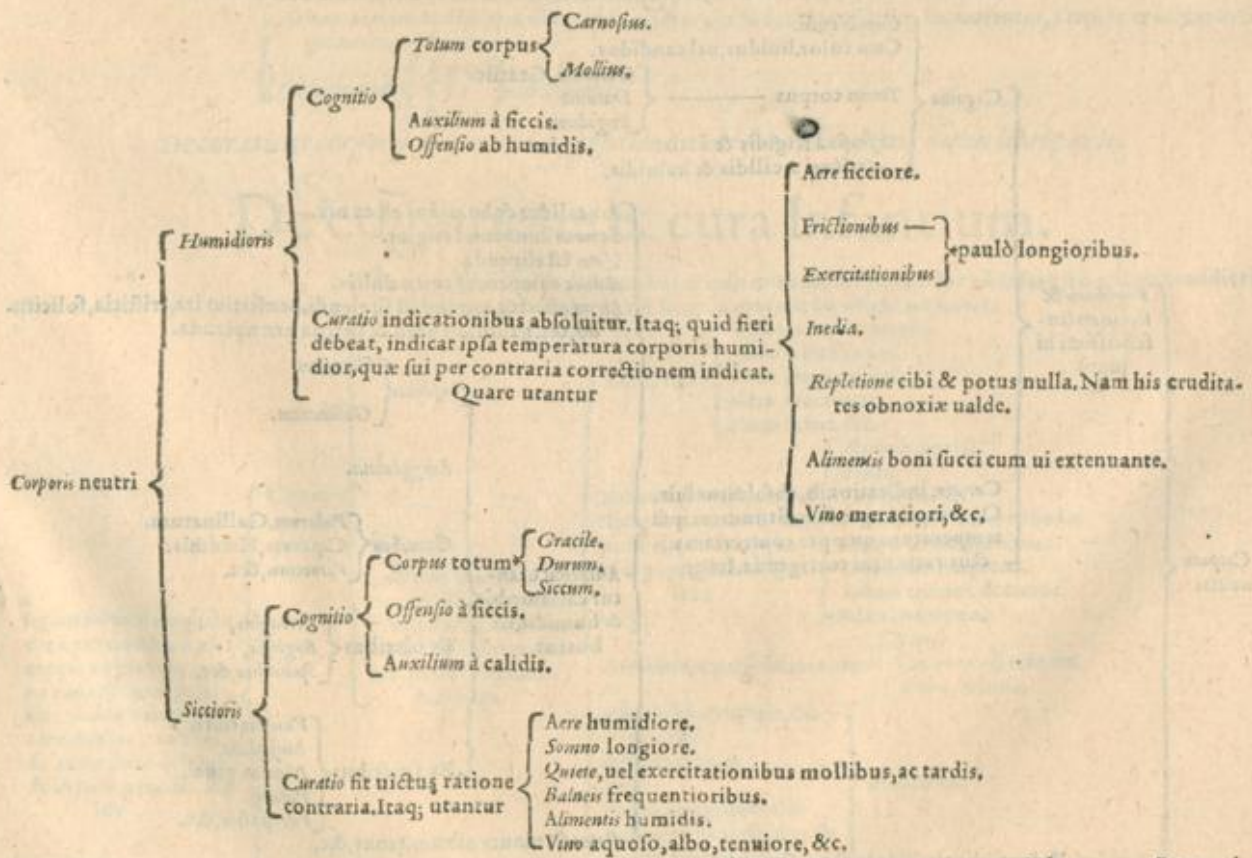 Corporis neutri
Humidioris
Cognitio
Totum corpus
Carnoſius.
Mollius.
Auxilium à ſiccis.
Offenſio ab humidis.
Curatio indicationibus abſoluitur. Itaq; quid fieri
debeat, indicat ipſa temperatura corporis humi-
dior, quæ ſui per contraria correctionem indicat.
Quare utantur
Aere ſicciore.
Frictionibus
Exercitationibus
paulò longioribus.
Inedia.
Repletione cibi & potus nulla. Nam his crudita-
tes obnoxiæ ualde.
Alimentis boni ſucci cum ui extenuante.
Vino meraciori, &c.
Siccioris
Cognitio
Corpus totum
Gracile.
Durum.
Siccum.
Offenſio à ſiccis.
Auxilium à calidis.
Curatio fit uictus ratione
contraria. Itaq; utantur
Aere humidiore.
Somno longiore.
Quiete, uel exercitationibus mollibus, ac tardis.
Balneis frequentioribus.
Alimentis humidis.
Vino aquoſo, albo, tenuiore, &c.